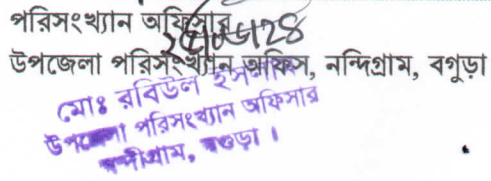 পরিসংখ্যান অফিসার
উপজেলা পরিসংখ্যান অফিস, নন্দিগ্রাম, বগুড়া
মোঃ রবিউল ইসলাম
উপজেলা পরিসংখ্যান অফিসার
নন্দীগ্রাম, বগুড়া।